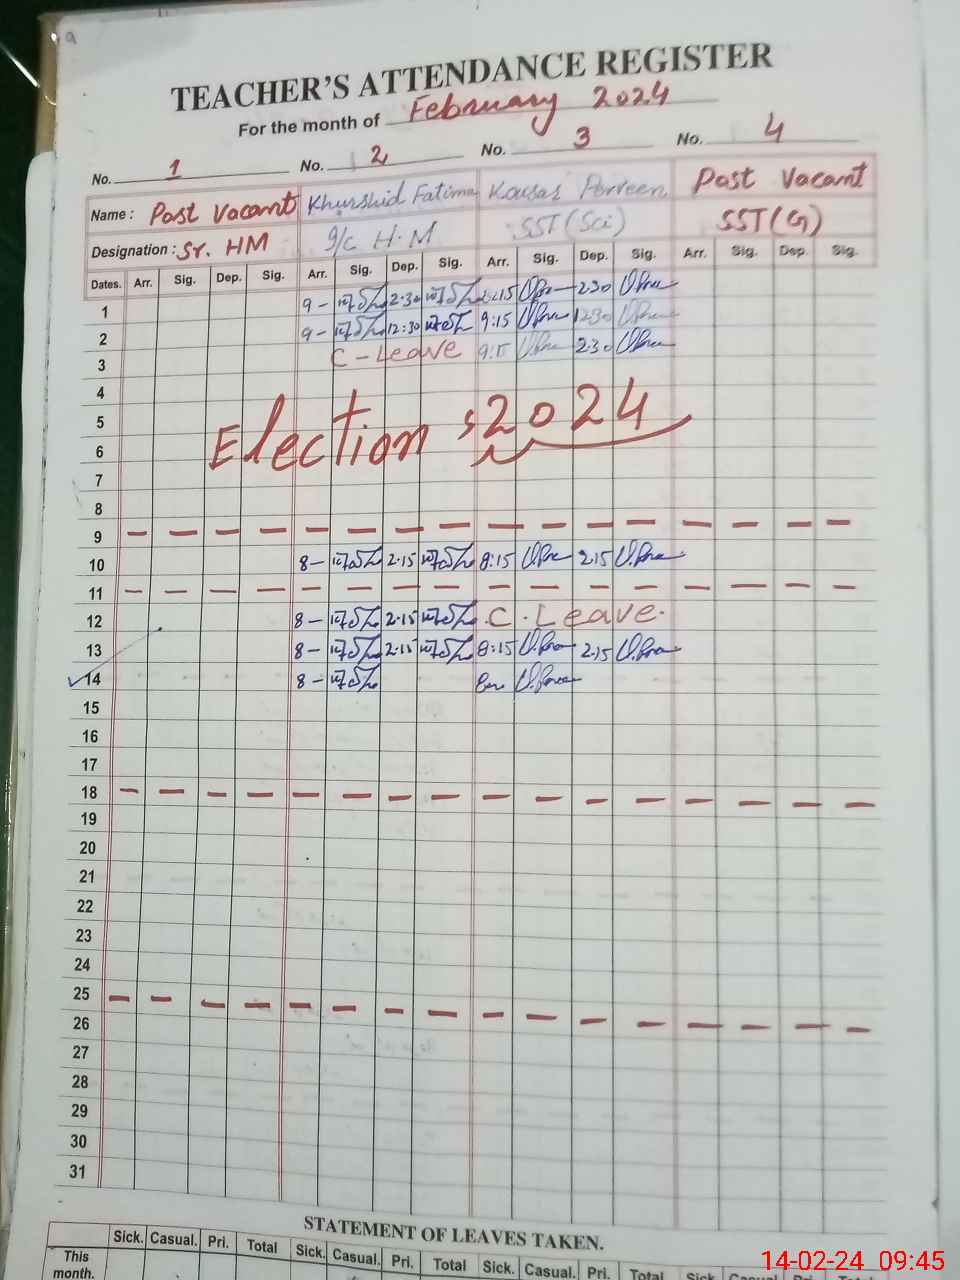 TEACHER'S ATTENDANCE REGISTER
For the month of February 2024
No. 1 No. 2 No. 3 No. 4
Name : Post Vacant Khurshid Fatima Kousar Perveen Post Vacant
Designation : Sr. HM I/C H.M SST (Sci) SST (G)
Dates. Arr. Sig. Dep. Sig. Arr. Sig. Dep. Sig. Arr. Sig. Dep. Sig. Arr. Sig. Dep. Sig.
1 9 - 2.30 2.30
2 9 - 12:30 9:15 1230
3 C - Leave 9:15 2.30
4
5
Election, 2024
6
7
8
9
10 8 - 2.15 8:15 2.15
11
12 8 - 2.15 C. Leave.
13 8 - 2.15 8:15 2.15
14 8 -
15
16
17
18
19
20
21
22
23
24
25
26
27
28
29
30
31
STATEMENT OF LEAVES TAKEN.
Sick. Casual. Pri. Total Sick. Casual. Pri. Total Sick. Casual. Pri. Total Sick. Casual. Pri. Total
This
month.
14-02-24 09:45